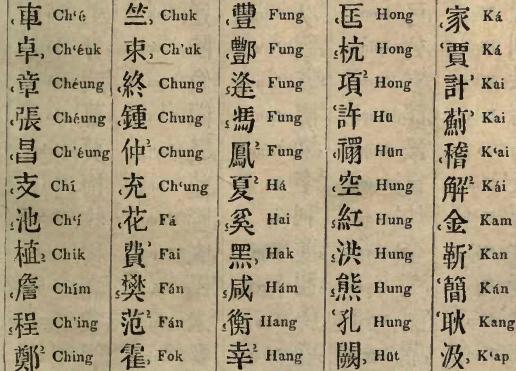 車 Ch‘é 竺 Chuk 豐 Fung 匡 Hong 家 Ká
卓 Ch‘éuk 束 Ch‘uk 酆 Fung 杭 Hong 賈 Ká
章 Chéung 終 Chung 逄 Fung 項 Hong 計 Kai
張 Chéung 鍾 Chung 馮 Fung 許 Hü 薊 Kai
昌 Ch‘éung 仲 Chung 鳳 Fung Hün 稽 K‘ai
支 Chí 充 Ch‘ung 夏 Há 空 Hung 解 Kái
池 Ch‘í 花 Fá 奚 Hai 紅 Hung 金 Kam
植 Chik 費 Fai 黑 Hak 洪 Hung 靳 Kan
詹 Chím 樊 Fán 咸 Hám 熊 Hung 簡 Kán
程 Ch‘ing 范 Fán 衡 Hang 孔 Hung 耿 Kang
鄭 Ching 霍 Fok 幸 Hang 闕 Hüt 汲 K‘ap